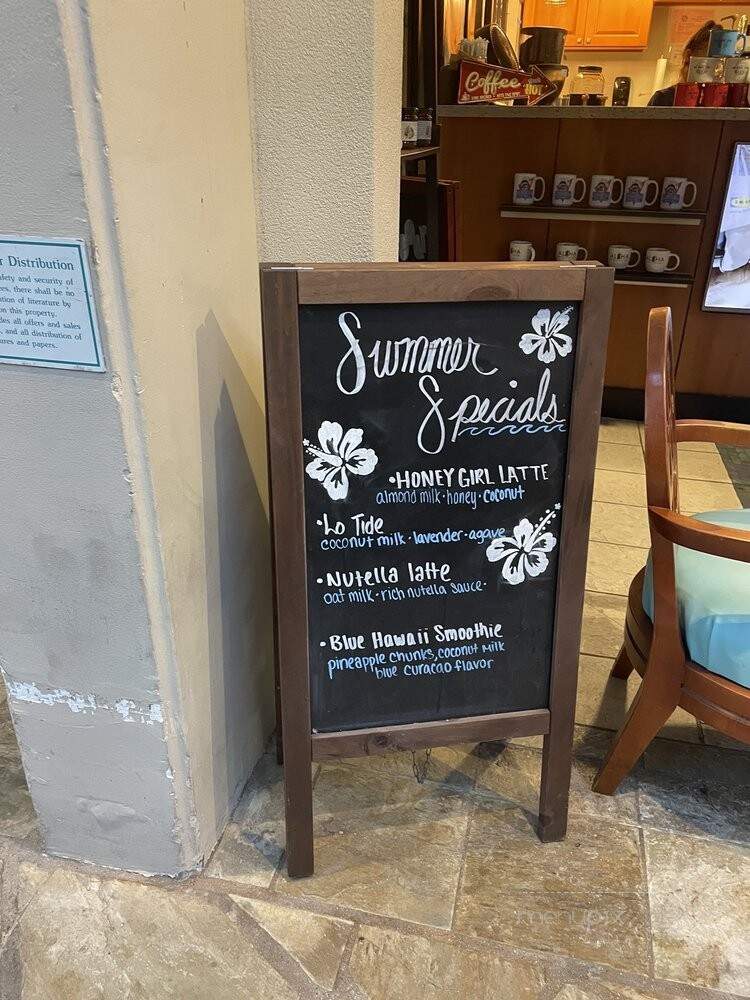 Coffee
HOT
r Distribution
fety and security of
es, there shall be no
tion of literature by
on this property.
des all offers and sales
, and all distribution of
ures and papers.
ALOHA
ALOHA
ALOHA
ALOHA
Summer
Specials
•HONEY GIRL LATTE
almond milk•honey•coconut
•Lo Tide
coconut milk•lavender•agave
•Nutella latte
oat milk•rich nutella sauce•
•Blue Hawaii Smoothie
pineapple chunks, coconut milk
blue curacao flavor
menupix